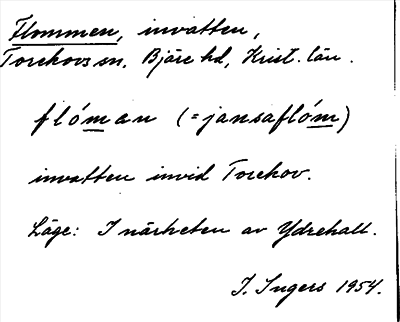 Flommen, invatten,
Torekovs sn, Bjäre hd, Krist. län.
flóman (=jansaflóm)
invatten invid Torekov.
Läge: I närheten av Ydrehall.
I. Ingers 1954.